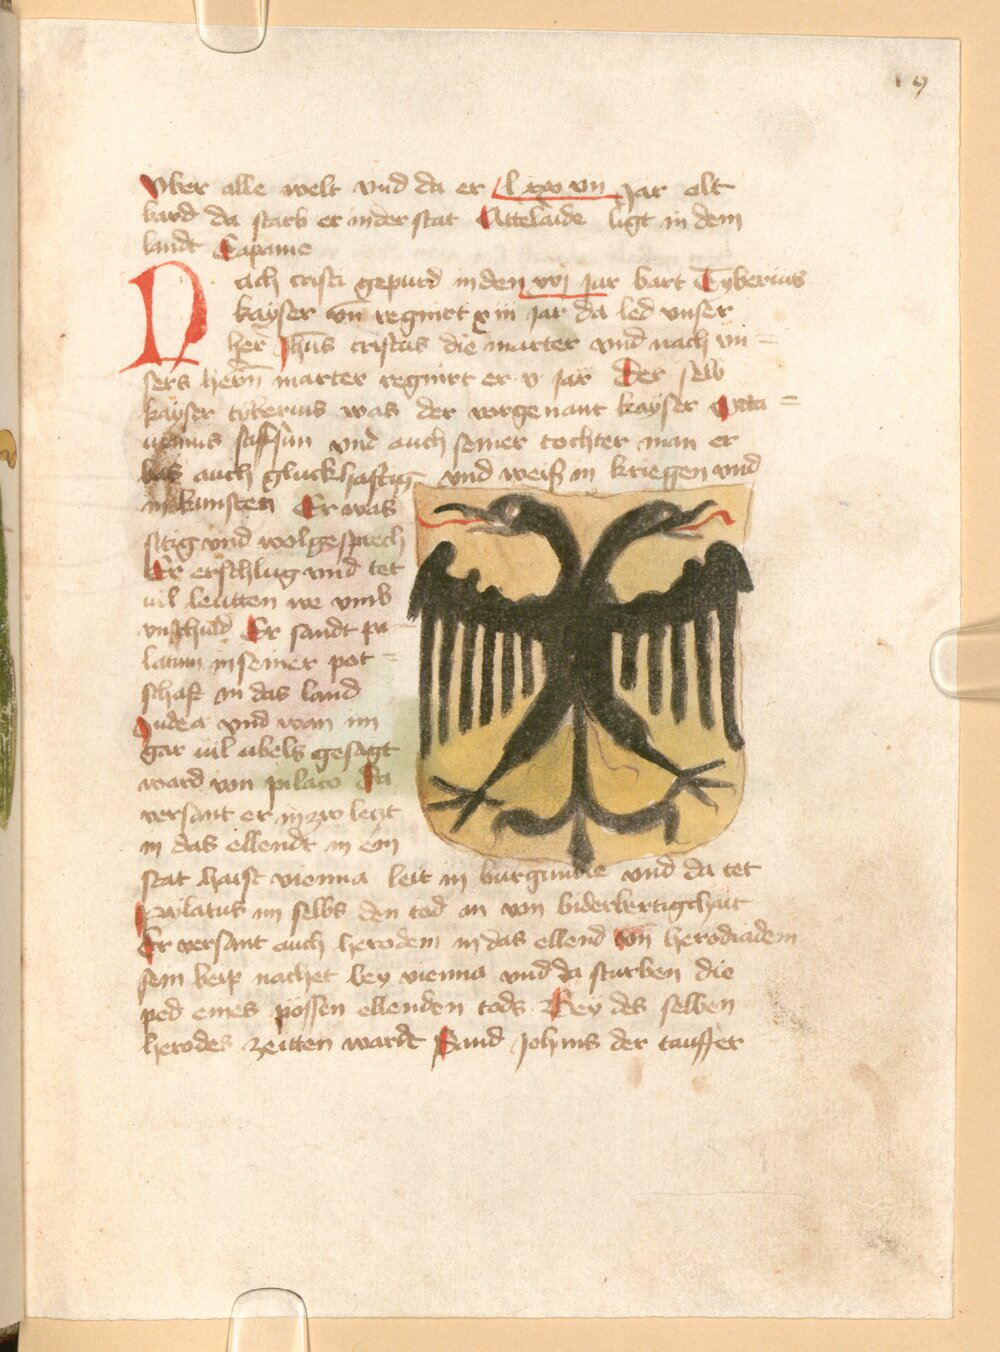 19
Vber alle welt vnd da er lxxvii Jar alt
ward da starb er in der stat Attelaide ligt in dem
landt Capanie
Nach cristi gepurd in den xvj jar wart Tyberius
kayser vn̄ regnirt xiii jar da led vnser
her Jhūs cristus die marter vnd nach vn=
sers hern̄ marter regnirt er v jar Der selb
kayser tyberius was der vorgenant kayser Octa=
uianus saffsun vnd auch seiner tochter man er
was auch gluckhaftig vnd weiß in kriegen vnd
in kunsten Er was
sitig vnd wolgesprech
Er erschlug vnd tet
uil leutten we vmb
vnschuld Er sandt pi=
latum in seiner pot=
schaft in das land
Judea vnd wan im
gar uil ubels gesagt
ward von pilato Da
versant er in zw letzt
in das ellendt in ein
stat haist vienna leit in burgundie vnd da tet
pylatus im selbs den tod an von widerwertigchait
Er versant auch herodem in das ellend von herodiadem
sein weip nachet bey vienna vnd da sturben die
ped eines possen ellenden tods Bey des selben
herodes zeitten wardt Sand Johnns der tauffer